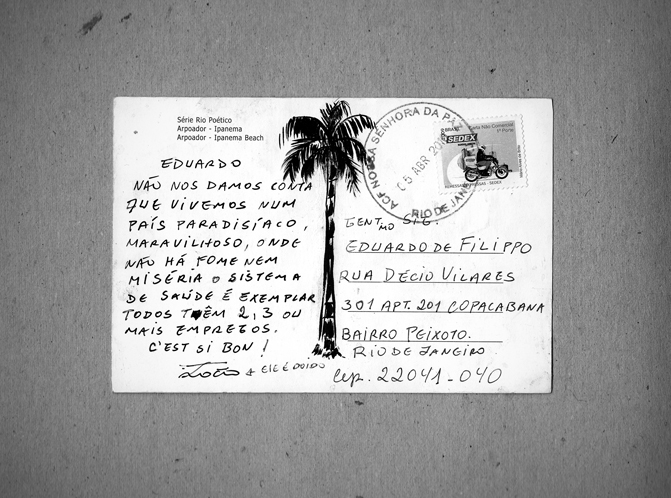 Série Rio Poético
Arpoador - Ipanema
Arpoador - Ipanema Beach
EDUARDO
NÃO NOS DAMOS CONTA
QUE VIVEMOS NUM
PAÍS PARADISÍACO,
MARAVILHOSO, ONDE
NÃO HÁ FOME NEM
MISÉRIA O SISTEMA
DE SAÚDE É EXEMPLAR
TODOS TÊM 2, 3 OU
MAIS EMPREGOS.
C'EST SI BON!
ELE É DOIDO
ACF NOSSA SENHORA DA PAZ
05 ABR
RIO DE JAN
BRASIL
Carta Não Comercial
1º Porte
SEDEX
GENTMO SIG.
EDUARDO DE FILIPPO
RUA DECIO VILARES
301 APT. 201 COPACABANA
BAIRRO PEIXOTO.
RIO DE JANEIRO
Cep. 22041-040